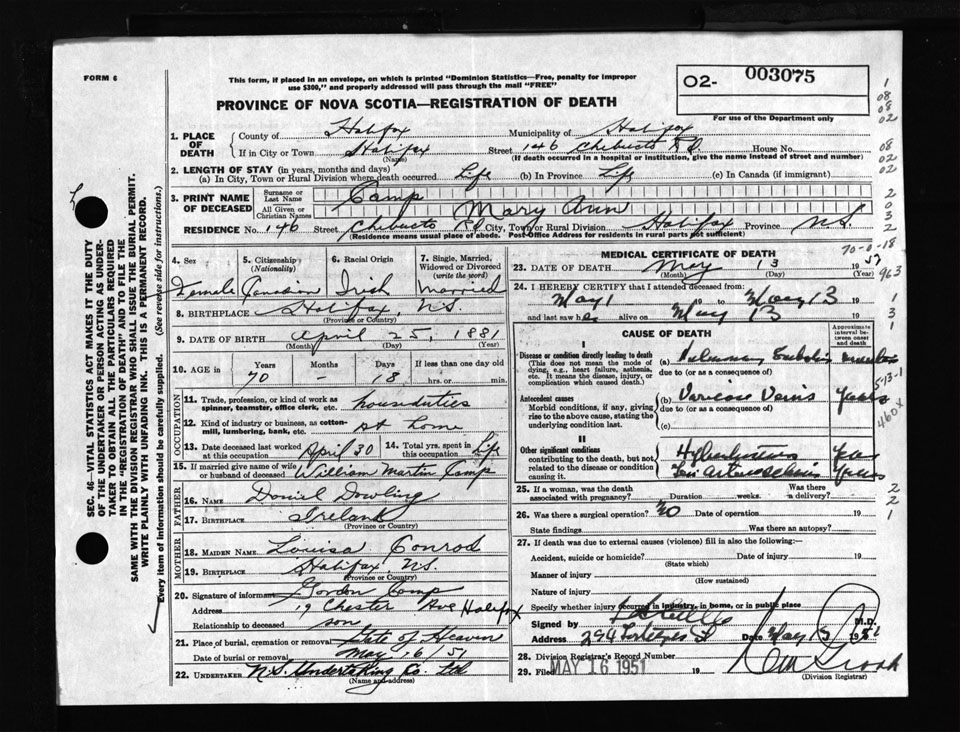 FORM 6
This form, if placed in an envelope, on which is printed "Dominion Statistics—Free, penalty for improper
use $300," and properly addressed will pass through the mail "FREE"
PROVINCE OF NOVA SCOTIA—REGISTRATION OF DEATH
02- 003075
For use of the Department only
1. PLACE OF DEATH
County of Halifax Municipality of Halifax
If in City or Town Halifax Street 146 Chebucto Rd House No.
(Name) (If death occurred in a hospital or institution, give the name instead of street and number)
2. LENGTH OF STAY (in years, months and days)
(a) In City, Town or Rural Division where death occurred Life (b) In Province Life (c) In Canada (if immigrant)
3. PRINT NAME OF DECEASED
Surname or Last Name Camp
All Given or Christian Names Mary Ann
RESIDENCE No. 146 Street Chebucto Rd City, Town or Rural Division Halifax Province N.S.
(Residence means usual place of abode. Post-Office Address for residents in rural parts not sufficient)
4. Sex Female
5. Citizenship (Nationality) Canadian
6. Racial Origin Irish
7. Single, Married, Widowed or Divorced (write the word) Married
8. BIRTHPLACE Halifax, N.S.
(Province or Country)
9. DATE OF BIRTH April 25, 1881
(Month) (Day) (Year)
10. AGE in Years 70 Months - Days 18 If less than one day old hrs. or min.
OCCUPATION
11. Trade, profession, or kind of work as spinner, teamster, office clerk, etc. houseduties
12. Kind of industry or business, as cotton-mill, lumbering, bank, etc. at home
13. Date deceased last worked at this occupation April 30
14. Total yrs. spent in this occupation Life
15. If married give name of wife or husband of deceased William Martin Camp
FATHER
16. NAME Daniel Dowling
17. BIRTHPLACE Ireland
(Province or Country)
MOTHER
18. MAIDEN NAME Louisa Conrod
19. BIRTHPLACE Halifax, N.S.
(Province or Country)
20. Signature of informant Gordon Camp
Address 19 Chester Ave Halifax
Relationship to deceased son
21. Place of burial, cremation or removal Gate of Heaven
Date of burial or removal May 16/51
22. UNDERTAKER N.S. Undertaking Co. Ltd
(Name and address)
MEDICAL CERTIFICATE OF DEATH
23. DATE OF DEATH May 13 19 51
(Month) (Day) (Year)
24. I HEREBY CERTIFY that I attended deceased from:
May 1 19 to May 13 19
and last saw her alive on May 13 19
CAUSE OF DEATH
Approximate interval between onset and death
I
Disease or condition directly leading to death
(This does not mean the mode of dying, e.g., heart failure, asthenia, etc. It means the disease, injury, or complication which caused death.)
(a) Pulmonary Embolism
due to (or as a consequence of)
Antecedent causes
Morbid conditions, if any, giving rise to the above cause, stating the underlying condition last.
(b) Varicose Veins years
due to (or as a consequence of)
(c)
II
Other significant conditions
contributing to the death, but not related to the disease or condition causing it.
Hypertension years
years
25. If a woman, was the death associated with pregnancy? Duration weeks. Was there a delivery?
26. Was there a surgical operation? No Date of operation 19
State findings Was there an autopsy?
27. If death was due to external causes (violence) fill in also the following:—
Accident, suicide or homicide? Date of injury 19
(State which)
Manner of injury
(How sustained)
Nature of injury
Specify whether injury occurred in industry, in home, or in public place
Signed by M.D.
Address 294 Date May 15 1951
28. Division Registrar's Record No.
29. Filed MAY 16 1951 19
(Division Registrar)
SEC. 46—VITAL STATISTICS ACT MAKES IT THE DUTY
OF THE UNDERTAKER OR PERSON ACTING AS UNDER-
TAKER TO OBTAIN ALL THE PARTICULARS REQUIRED
IN THE "REGISTRATION OF DEATH" AND TO FILE THE
SAME WITH THE DIVISION REGISTRAR WHO SHALL ISSUE THE BURIAL PERMIT.
WRITE PLAINLY WITH UNFADING INK. THIS IS A PERMANENT RECORD.
Every item of information should be carefully supplied. (See reverse side for instructions.)
1
08
08
02
08
02
02
2
0
3
2
70-0-18
963
1
3
1
593-1
460X
2
2
1